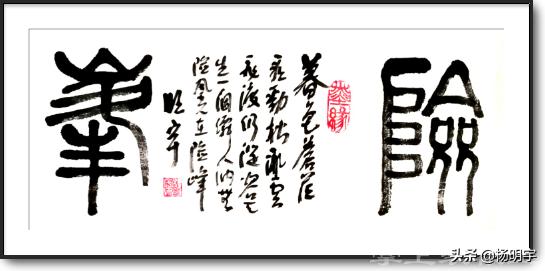 險
暮色蒼茫
看勁松亂雲
飛渡仍從容天
生一個仙人洞無
限風光在險峰
明宇
峯
头条 @杨明宇